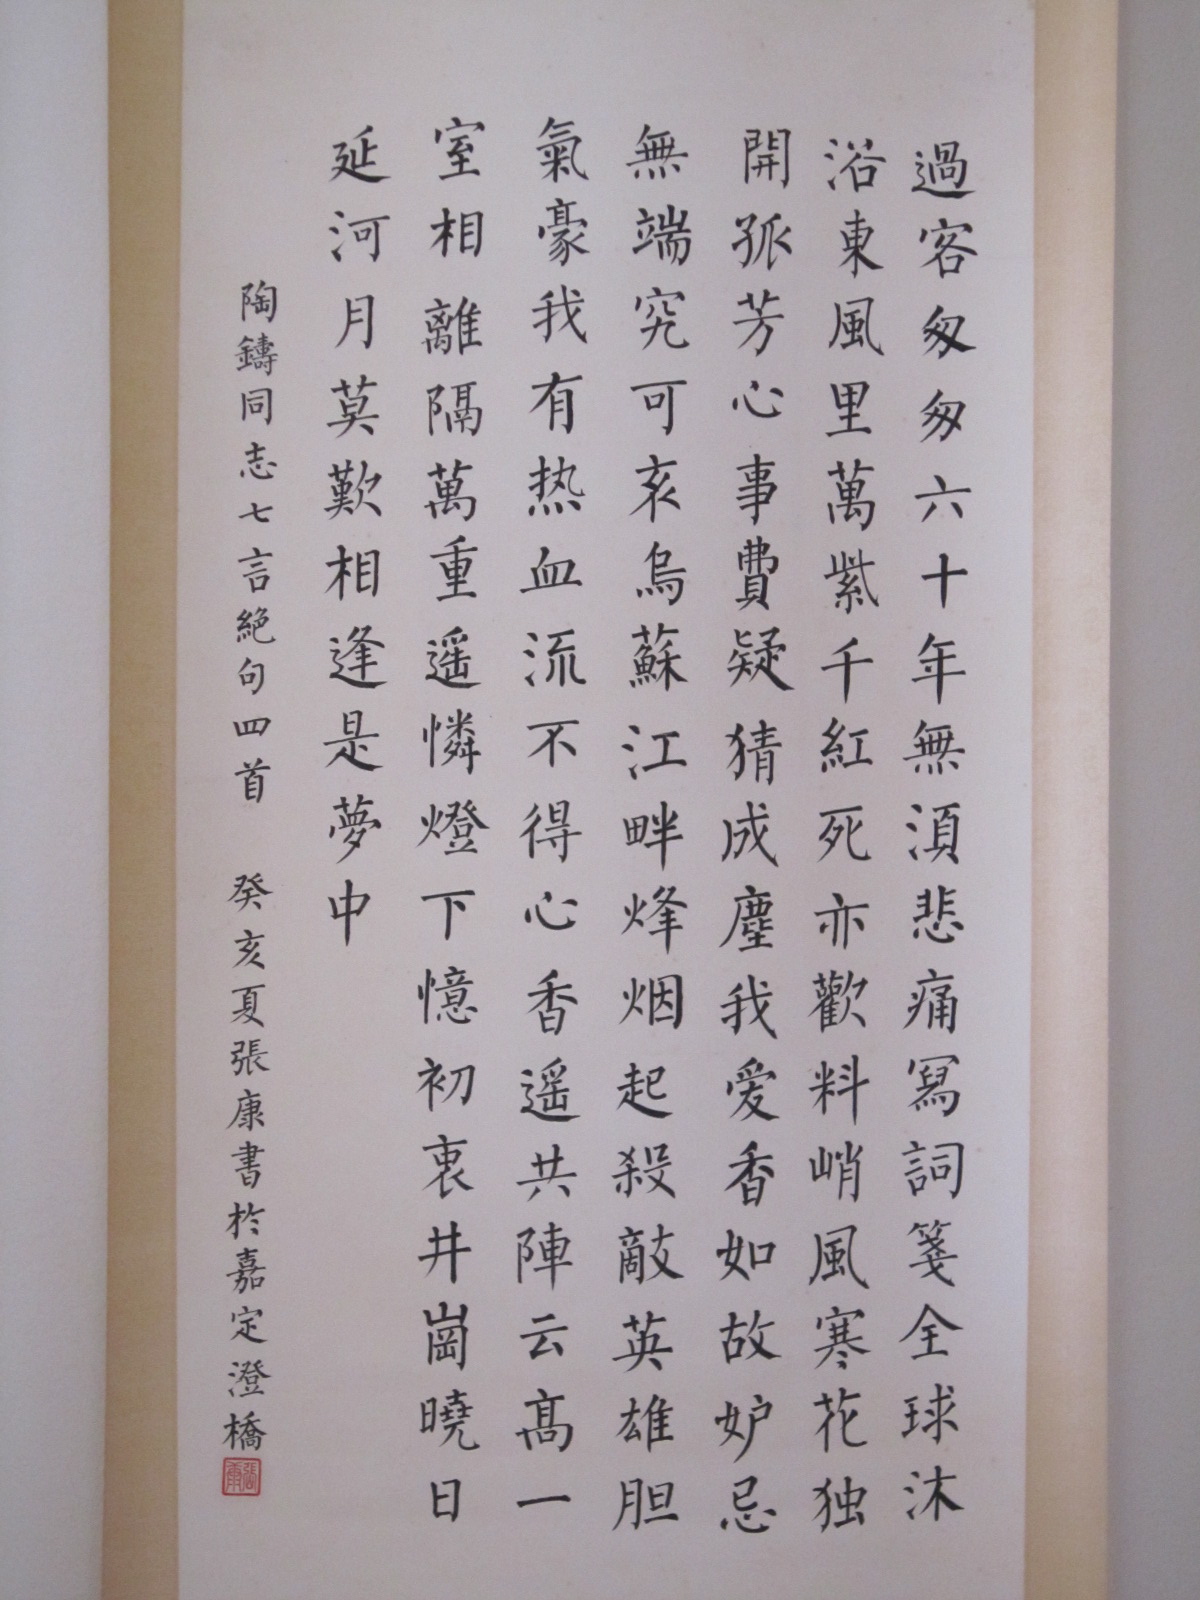 過客匆匆六十年無須悲痛寫詞箋全球沐
浴東風里萬紫千紅死亦歡料峭風寒花独
開孤芳心事費疑猜成塵我爱香如故妒忌
無端究可哀烏蘇江畔烽烟起殺敵英雄胆
氣豪我有热血流不得心香遥共陣云高一
室相離隔萬重遥憐燈下憶初衷井崗曉日
延河月莫歎相逢是夢中
陶鑄同志七言絕句四首 癸亥夏張康書於嘉定澄橋
張康